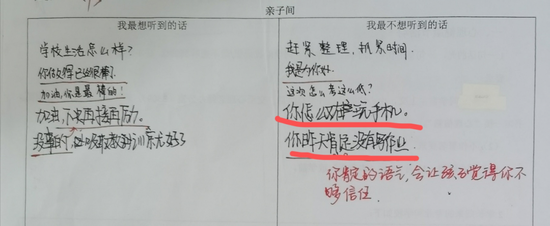 亲子间
我最想听到的话
我最不想听到的话
学校生活怎么样?
你做得已经很棒了.
加油,你是最棒的!
加油,下次再接再厉。
没事的,吸取教训就好了
赶紧整理,抓紧时间.
我是为你好.
这次怎么考这么低?
你怎么又在玩手机。
你昨天肯定没有写作业
你肯定的语气,会让孩子觉得你不
够信任.